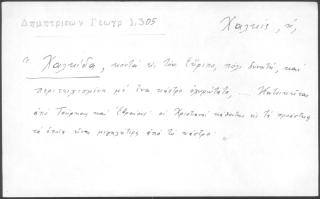 Δημητριέων Γεωγρ 1,305
Χαλκίς, ἡ,
ἡ Χαλκίδα, κοντὰ εἰς τὸν Εὔριπο, πόλι δυνατή, καὶ
περιτειχισμένη μὲ ἕνα κάστρο ὀχυρώτατο, ... Κατοικεῖται
ἀπὸ Τούρκους καὶ Ἑβραίους· οἱ Χριστιανοὶ κάθονται εἰς τὰ προάστεια
τὰ ὁποῖα εἶναι μεγαλήτερα ἀπὸ τὸ κάστρο.